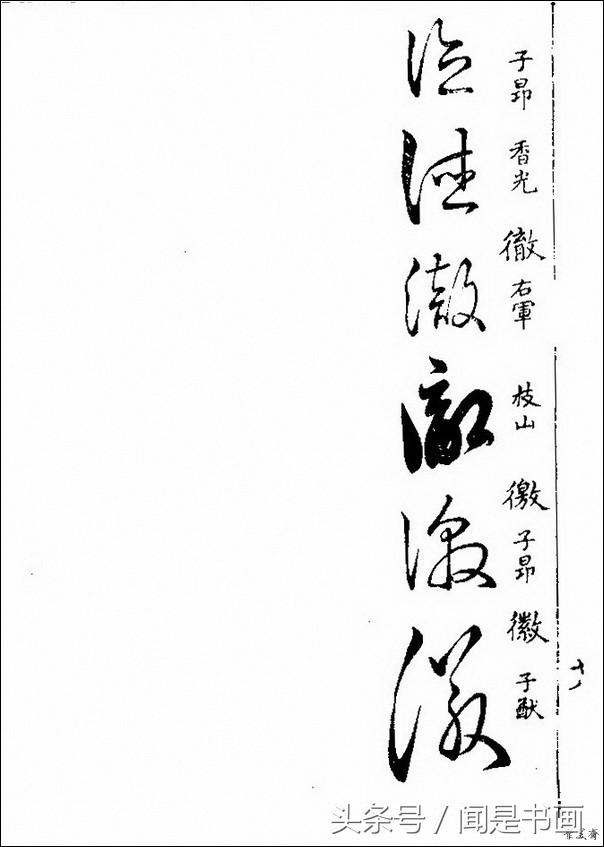 子昂 香光 徹 右軍 枝山 徼 子昂 徽 子猷
徹 徹 徼 徽
头条号 / 闻是书画